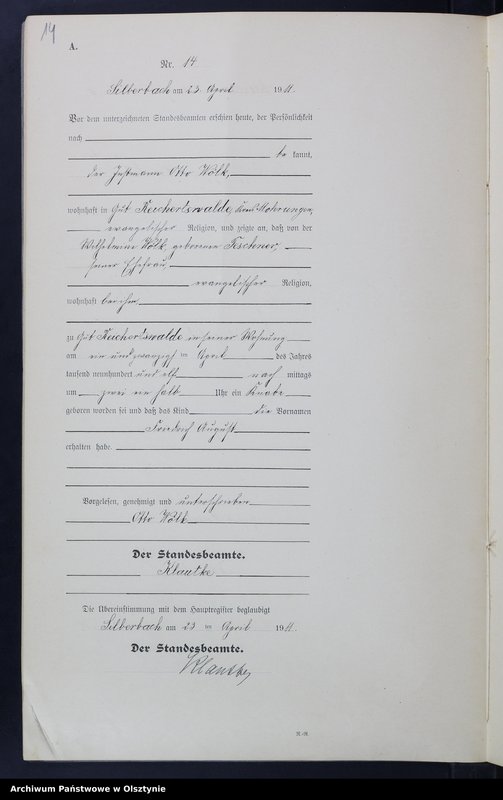 14
A.
Nr. 14
Silberbach am 23 April 1911.
Vor dem unterzeichneten Standesbeamten erschien heute, der Persönlichkeit
nach
be kannt,
der Instmann Otto Wölk,
wohnhaft in Gut Reichertswalde, Kreis Mohrungen,
evangelischer Religion, und zeigte an, daß von der
Wilhelmine Wölk, geborenen Teschner,
seiner Ehefrau,
evangelischer Religion,
wohnhaft bei ihm,
zu Gut Reichertswalde in seiner Wohnung
am ein und zwanzigsten April des Jahres
tausend neunhundert und elf nach mittags
um zwei ein halb Uhr ein Knabe
geboren worden sei und daß das Kind die Vornamen
Friedrich August
erhalten habe.
Vorgelesen, genehmigt und unterschrieben
Otto Wölk
Der Standesbeamte.
Klautke
Die Übereinstimmung mit dem Hauptregister beglaubigt
Silberbach am 23 ten April 1911.
Der Standesbeamte.
Klautke
Archiwum Państwowe w Olsztynie